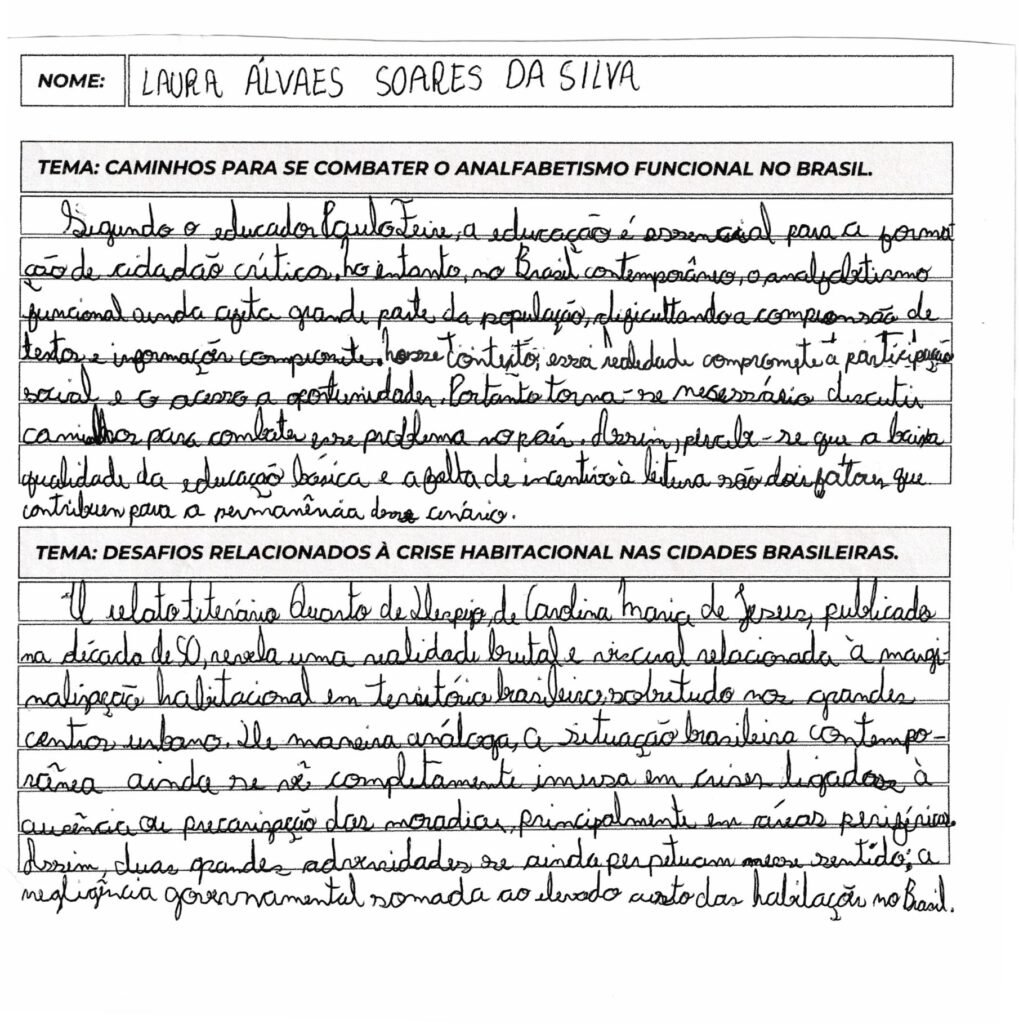 NOME: LAURA ÁLVAES SOARES DA SILVA
TEMA: CAMINHOS PARA SE COMBATER O ANALFABETISMO FUNCIONAL NO BRASIL.
Segundo o educador Paulo Feire, a educação é essencial para a forma
ção de cidadão críticos. no entanto, no Brasil contemporâneo, o analfabetismo
funcional ainda afeta grande parte da população, dificultando a compreensão de
textos e informações
nesse contexto, essa realidade compromete a participação
social e o acesso a oportunidades. Portanto torna-se necessário discutir
caminhos para combater esse problema no país. Assim, percebe-se que a baixa
qualidade da educação básica e a falta de incentivo à leitura são dois fatores que
contribuen para a permanência desse cenário.
TEMA: DESAFIOS RELACIONADOS À CRISE HABITACIONAL NAS CIDADES BRASILEIRAS.
O relato literário Quarto de Despejo, de Carolina Maria de Jesus, publicado
na década de 50, revela uma realidade brutal e visceral relacionada à margi-
nalização habitacional em território brasileiro, sobretudo nos grandes
centros urbano. De maneira análoga, a situação brasileira contempo-
rânea ainda se vê completamente imersa em crises ligadas à
ausência ou precarização das moradias, principalmente em áreas periféricas.
Assim, duas grandes adversidades se ainda perpetuam nesse sentido: a
negligência governamental somada ao elevado custo das habitações no Brasil.